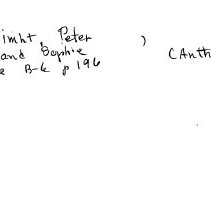 imht, Peter )
and Sophie CAnth
e B-k p 196